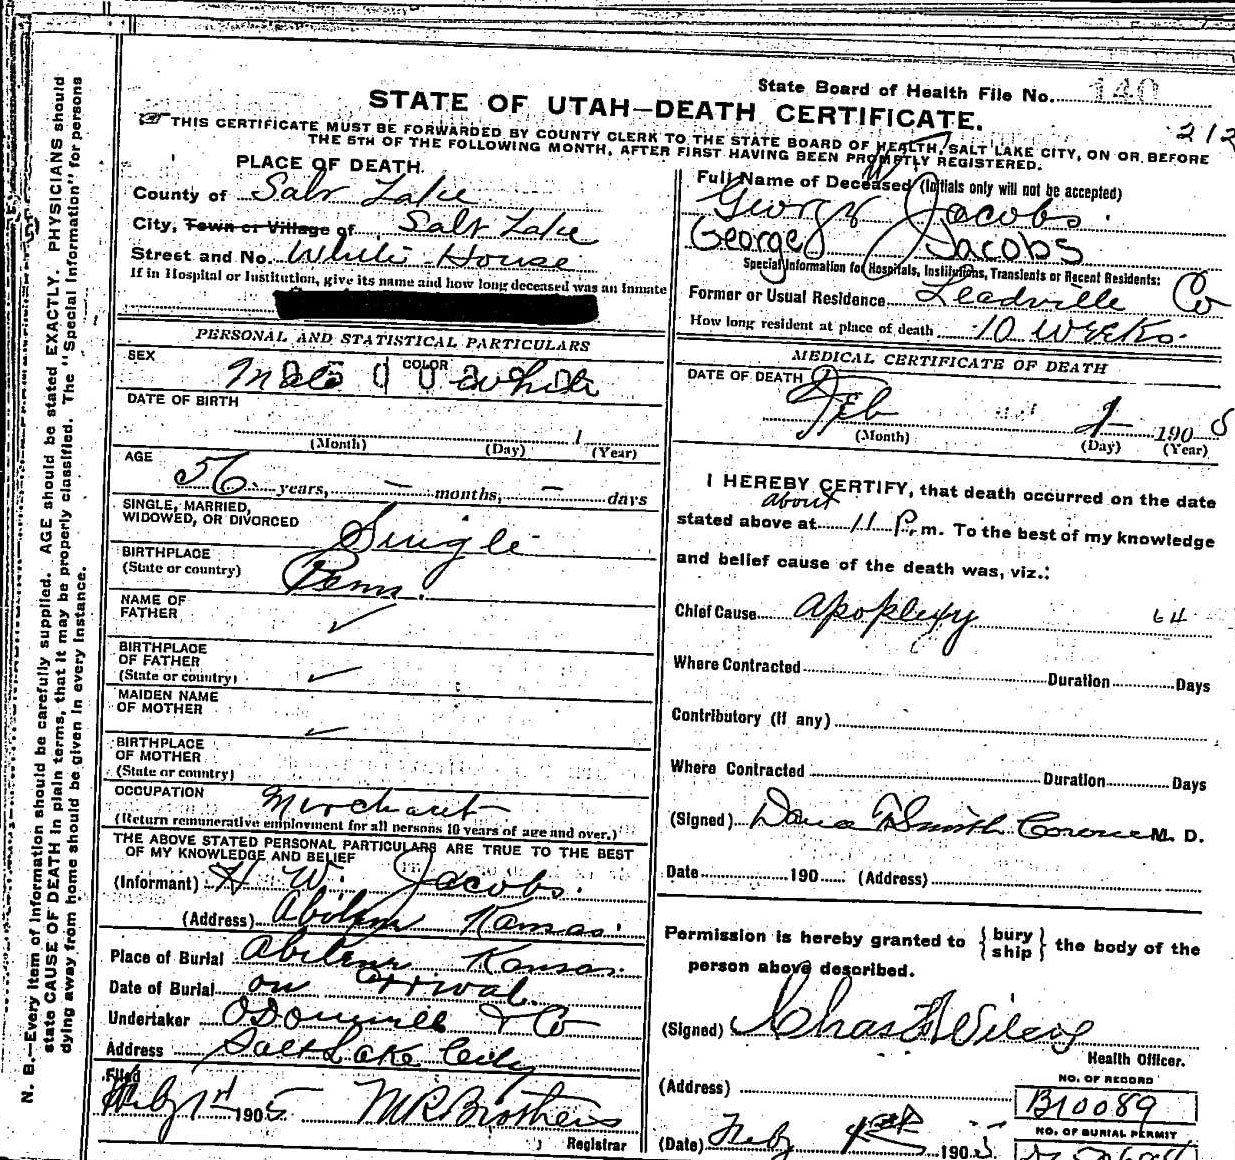 State Board of Health File No. 140
STATE OF UTAH—DEATH CERTIFICATE.
212
THIS CERTIFICATE MUST BE FORWARDED BY COUNTY CLERK TO THE STATE BOARD OF HEALTH, SALT LAKE CITY, ON OR BEFORE
THE 5TH OF THE FOLLOWING MONTH, AFTER FIRST HAVING BEEN PROMPTLY REGISTERED.
PLACE OF DEATH.
County of Salt Lake
City, Town or Village of Salt Lake
Street and No. White House
If in Hospital or Institution, give its name and how long deceased was an inmate
PERSONAL AND STATISTICAL PARTICULARS
SEX Male COLOR White
DATE OF BIRTH
(Month) (Day) 1 (Year)
AGE
56 years, – months, – days
SINGLE, MARRIED,
WIDOWED, OR DIVORCED Single
BIRTHPLACE
(State or country) Penn.
NAME OF
FATHER
BIRTHPLACE
OF FATHER
(State or country)
MAIDEN NAME
OF MOTHER
BIRTHPLACE
OF MOTHER
(State or country)
OCCUPATION Merchant
(Return remunerative employment for all persons 10 years of age and over.)
THE ABOVE STATED PERSONAL PARTICULARS ARE TRUE TO THE BEST
OF MY KNOWLEDGE AND BELIEF
(Informant) H W. Jacobs.
(Address) Abilene Kansas
Place of Burial Abilene Kansas.
Date of Burial on arrival
Undertaker O'Donnell & Co
Address Salt Lake City
Filed
Feby 1905 M R Brothers
Registrar
Full Name of Deceased (Initials only will not be accepted)
George Jacobs.
George Jacobs
Special Information for Hospitals, Institutions, Transients or Recent Residents:
Former or Usual Residence Leadville Co
How long resident at place of death 10 weeks.
MEDICAL CERTIFICATE OF DEATH
DATE OF DEATH
Feb 1 1905
(Month) (Day) (Year)
I HEREBY CERTIFY, that death occurred on the date
about
stated above at 11 P. m. To the best of my knowledge
and belief cause of the death was, viz.:
Chief Cause Apoplexy 64
Where Contracted Duration Days
Contributory (if any)
Where Contracted Duration Days
(Signed) Dana T Smith Coroner M. D.
Date 190 (Address)
Permission is hereby granted to {bury ship} the body of the
person above described.
(Signed) Chas Wilcox
Health Officer.
(Address)
NO. OF RECORD
B10089
NO. OF BURIAL PERMIT
(Date) Feby 4th 1905
N. B.—Every item of information should be carefully supplied. AGE should be stated EXACTLY. PHYSICIANS should
state CAUSE OF DEATH in plain terms, that it may be properly classified. The "Special Information" for persons
dying away from home should be given in every instance.